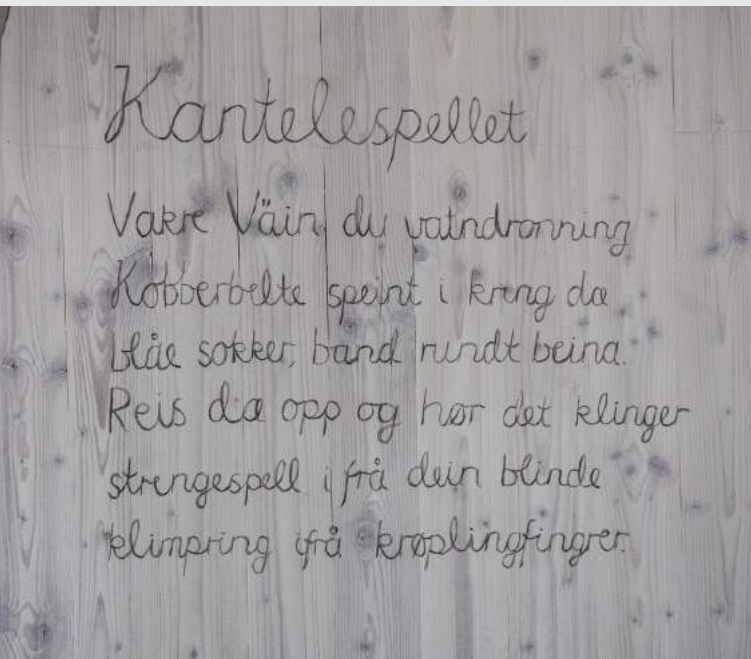 Kantelespellet
Vakre Väin du vatndronning
Kobberbelte speint i kring dæ
blåe sokker, band rundt beina.
Reis dæ opp og hør det klinger
strengespell ifrå dein blinde
klimpring ifrå krøplingfingrer.